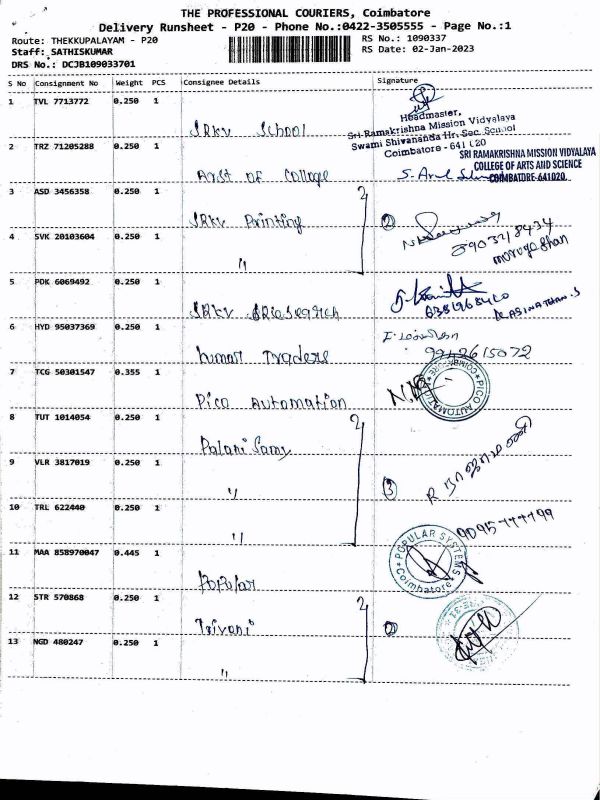 THE PROFESSIONAL COURIERS, Coimbatore
Delivery Runsheet - P20 - Phone No.:0422-3505555 - Page No.:1
Route: THEKKUPALAYAM - P20 RS No.: 1090337
Staff: SATHISKUMAR RS Date: 02-Jan-2023
DRS No.: DCJB109033701
S No Consignment No Weight PCS Consignee Details Signature
1 TVL 7713772 0.250 1
SRKV School
Headmaster,
Sri Ramakrishna Mission Vidyalaya
Swami Shivananda Hr. Sec. School
Coimbatore - 641 020
2 TRZ 71205288 0.250 1
Arst of College
SRI RAMAKRISHNA MISSION VIDYALAYA
COLLEGE OF ARTS AND SCIENCE
COIMBATORE-641020.
3 ASD 3456358 0.250 1
SRKV Printing 2
4 SVK 20103604 0.250 1
"
8903218434
murugeshan
5 PDK 6069492 0.250 1
SRKV
6381968420
KASINATHAN.S
6 HYD 95037369 0.250 1
kumar Traders
9942615072
7 TCG 50301547 0.355 1
Pico Automation
PICO AUTOMATION COIMBATORE
8 TUT 1014054 0.250 1
Palani Samy
9 VLR 3817019 0.250 1
" 3
10 TRL 622440 0.250 1
"
9095777799
11 MAA 858970047 0.445 1
Popular
POPULAR SYSTEMS Coimbatore
12 STR 570868 0.250 1
Triveni 2
13 NGD 480247 0.250 1
"